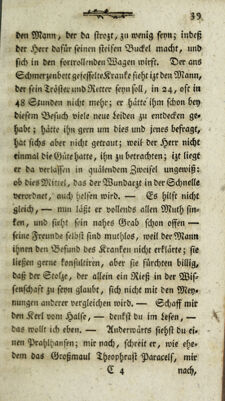 39
den Mann, der da strozt, zu wenig seyn; indeß
der Herr dafür seinen steifen Buckel macht, und
sich in den fortrollenden Wagen wirft. Der ans
Schmerzenbett gefesselte Kranke sieht izt den Mann,
der sein Tröster und Retter seyn soll, in 24, oft in
48 Stunden nicht mehr; er hätte ihm schon bey
diesem Besuch viele neue Leiden zu entdecken ge-
habt; hätte ihn gern um dies und jenes befragt,
hat sichs aber nicht getraut; weil der Herr nicht
einmal die Güte hatte, ihn zu betrachten; izt liegt
er da verlassen in quälendem Zweifel ungewiß:
ob dies Mittel, das der Wundarzt in der Schnelle
verordnet, auch helfen wird. — Es hilft nicht
gleich, — nun läßt er vollends allen Muth sin-
ken, und sieht sein nahes Grab schon offen —
seine Freunde selbst sind muthlos, weil der Mann
ihnen den Befund des Kranken nicht erklärte; sie
ließen gerne konsultiren, aber sie fürchten billig,
daß der Stolze, der allein ein Rieß in der Wis-
senschaft zu seyn glaubt, sich nicht mit den Mey-
nungen anderer vergleichen wird. — Schaff mir
den Kerl vom Halse, — denkst du im Lesen, —
das wollt ich eben. — Anderwärts siehst du ei-
nen Prahlhansen; mir nach, schreit er, wie ehe-
dem das Großmaul Theophrast Paracels, mir
C 4 nach,